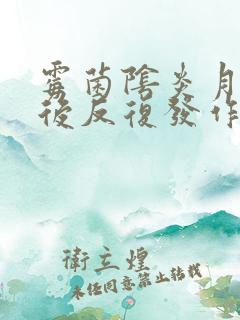 霉菌陰炎月
後反復發作
衛立煌
未经同意禁止转载